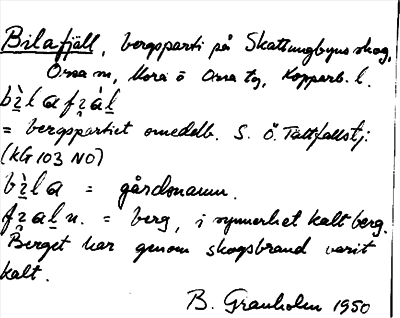 Bilafjäll, bergsparti på Skattungbyns skog,
Orsa sn, Mora o Orsa tg, Kopparb. l.
bìlafjäl
= bergspartiet omedelb. S. Ö. Tättfallstj:
(KG 103 NO)
bìla = gårdsnamn.
fjäl n. = berg, i synnerhet kalt berg.
Berget har genom skogsbrand varit
kalt.
B. Granholm 1950